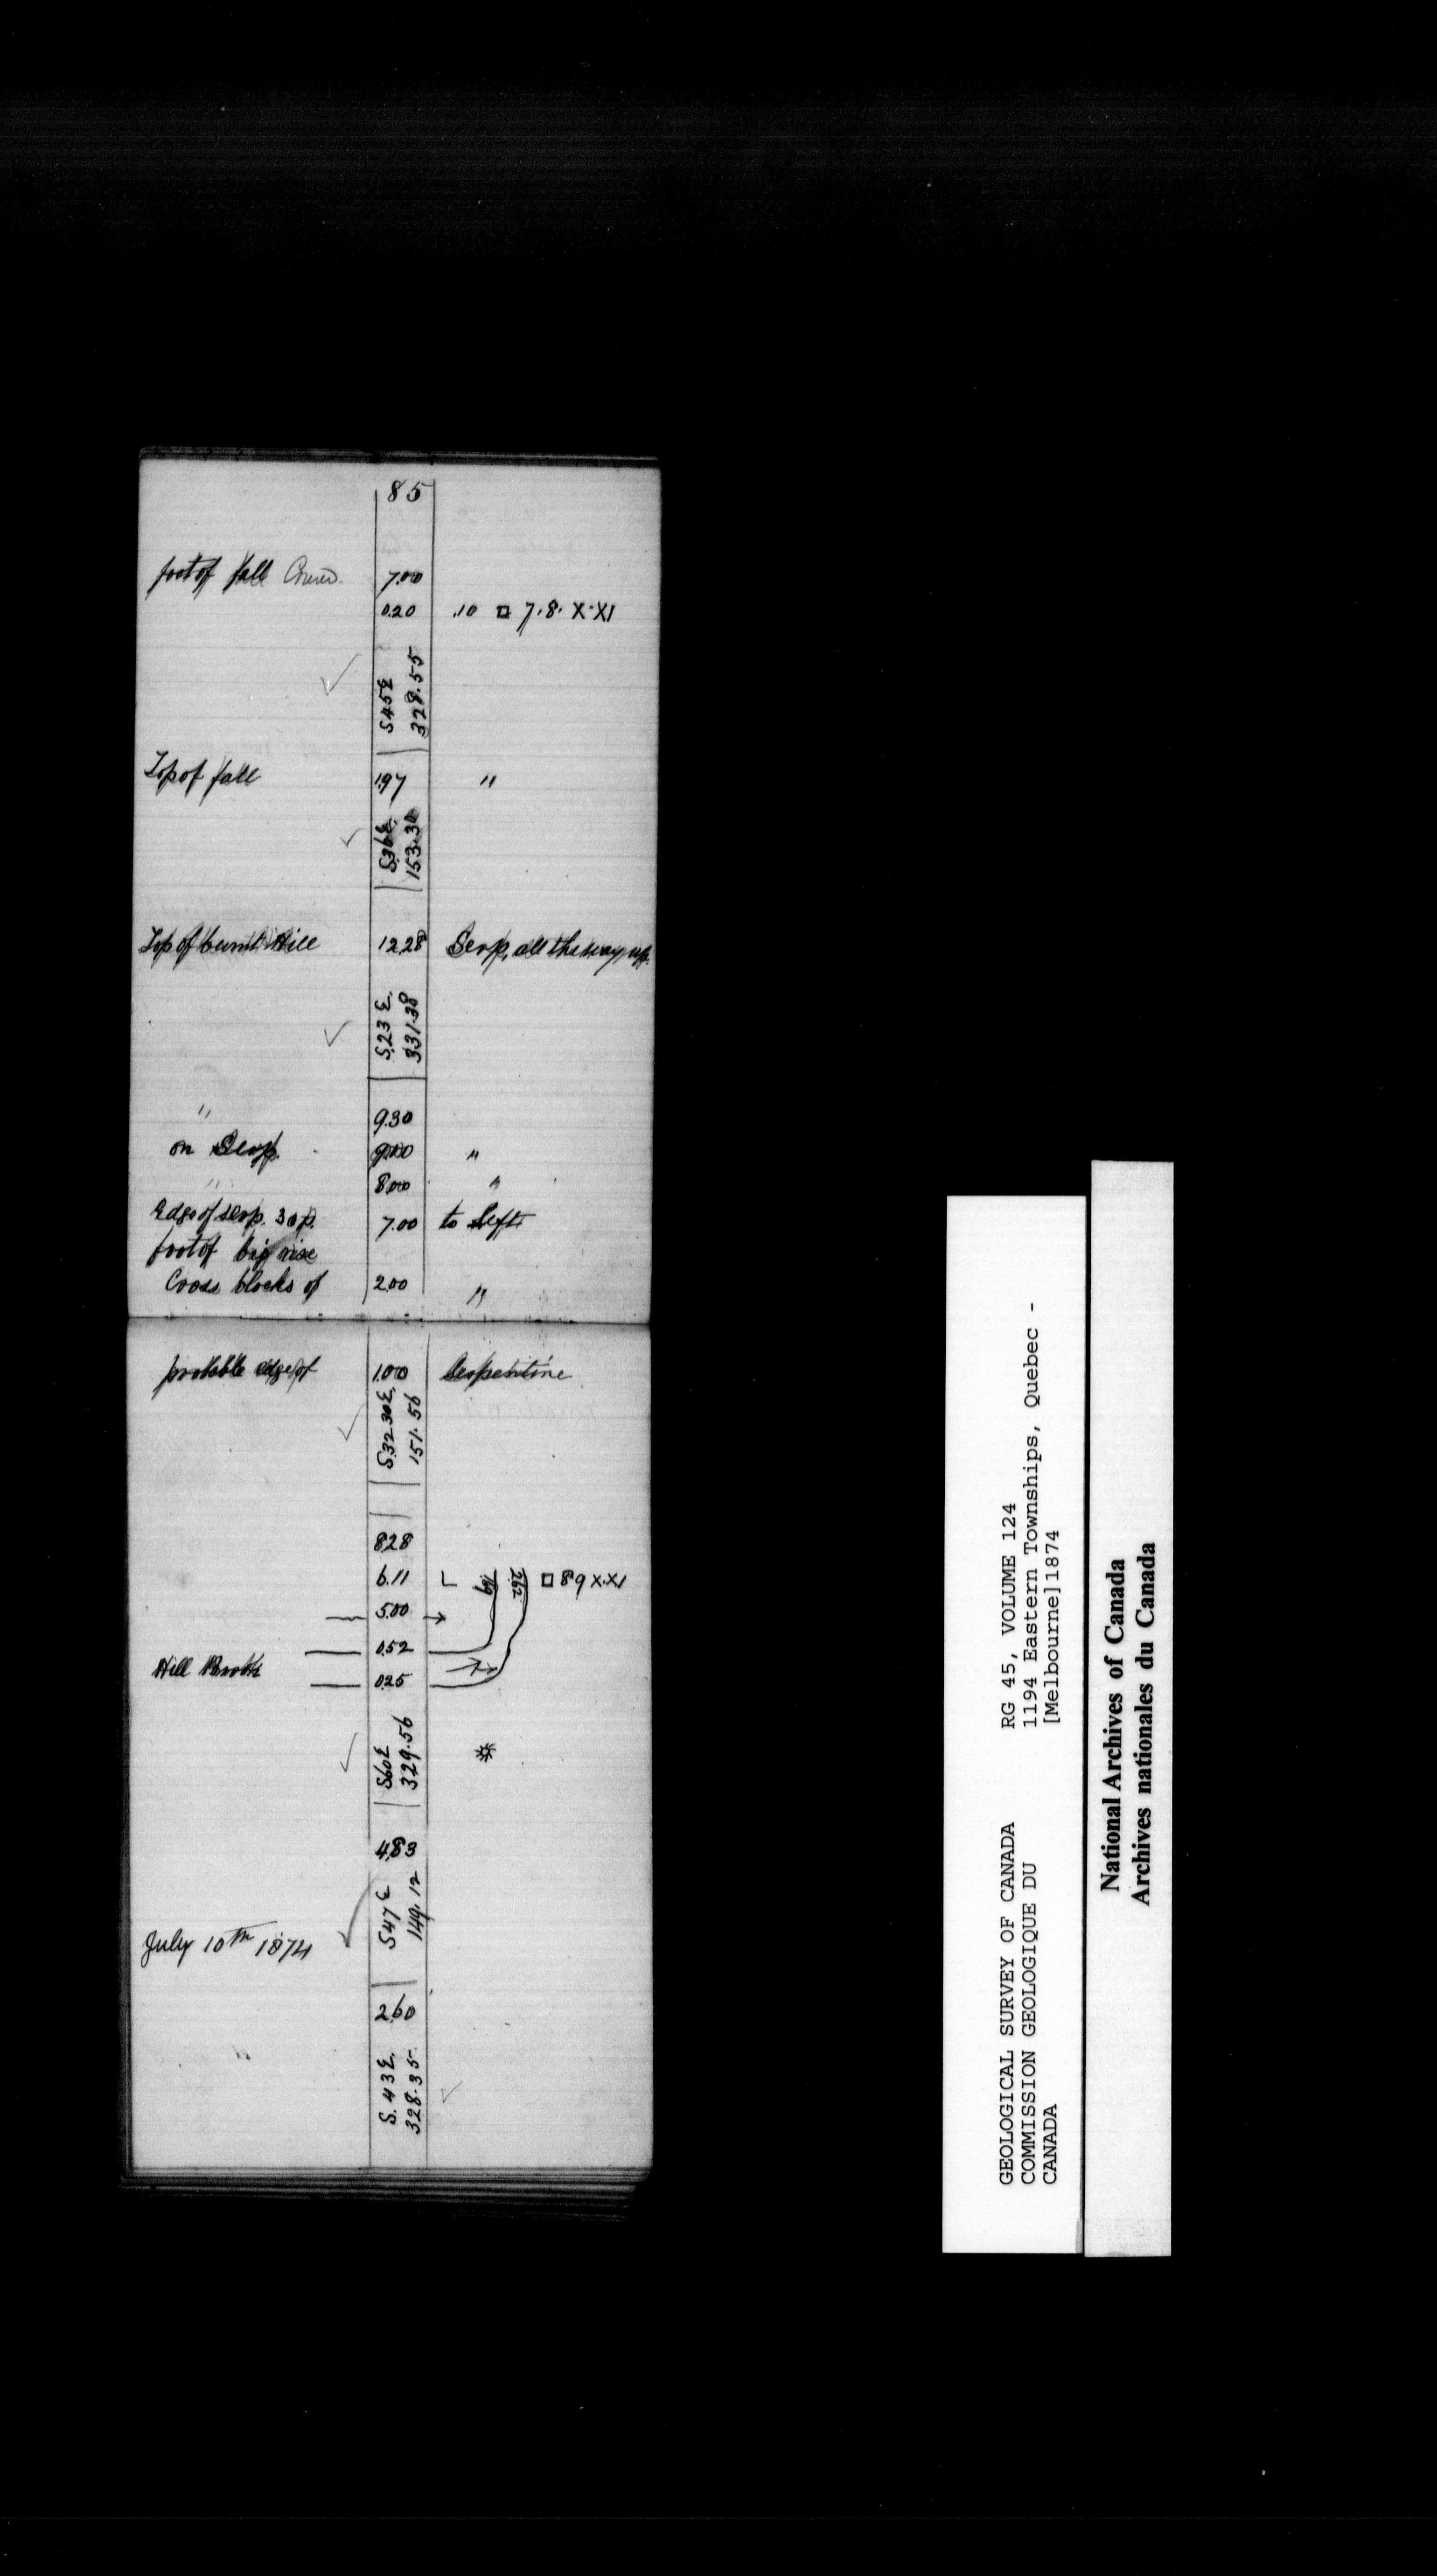 85
foot of fall 7.00
0.20 .10 □ 7.8. X.XI
S45E
328.55
Top of fall 1.97 "
S.36E.
153.30
Top of burnt Hill 12.28 Serp. all the way up.
S.23 E.
331.38
" 9.30
on Serp. 9.00 "
" 8.00 "
Edge of serp. 30 p. 7.00 to left
foot of big rise
Cross blocks of 2.00 "
probable edge of 1.00 Serpentine
S.32 30E.
151.56
8.28
6.11 L 169 262 □ 89 X.XI
5.00
0.52
Hill Brook
0.25
S60E
329.56
4.83
S47E
149.12
July 10th 1874
2.60
S. 43E.
328.35.
GEOLOGICAL SURVEY OF CANADA
COMMISSION GEOLOGIQUE DU
CANADA
RG 45, VOLUME 124
1194 Eastern Townships, Quebec -
[Melbourne]1874
National Archives of Canada
Archives nationales du Canada